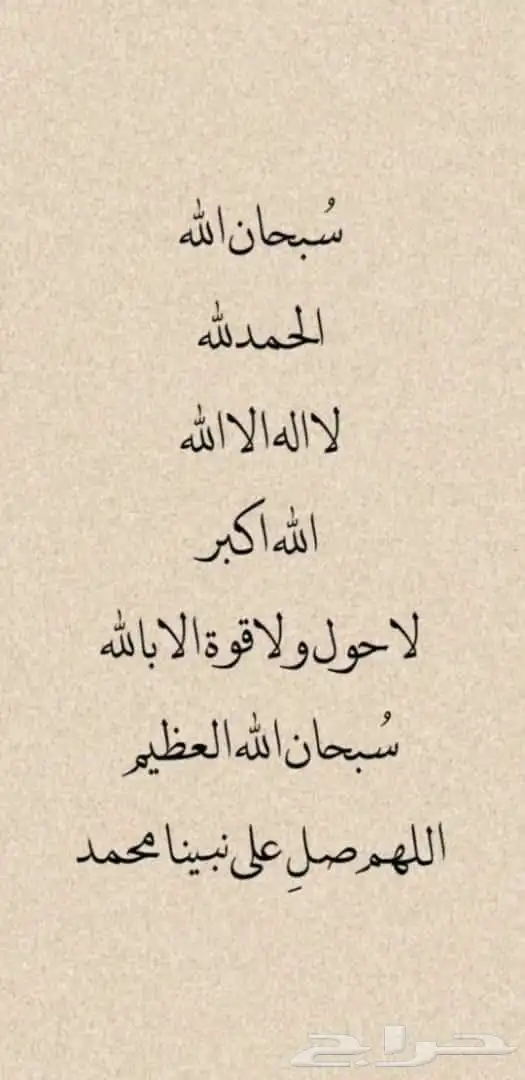 سُبحان الله
الحمدلله
لا اله الا الله
الله اكبر
لا حول ولا قوة الا بالله
سُبحان الله العظيم
اللهم صلِ على نبينا محمد
حراج